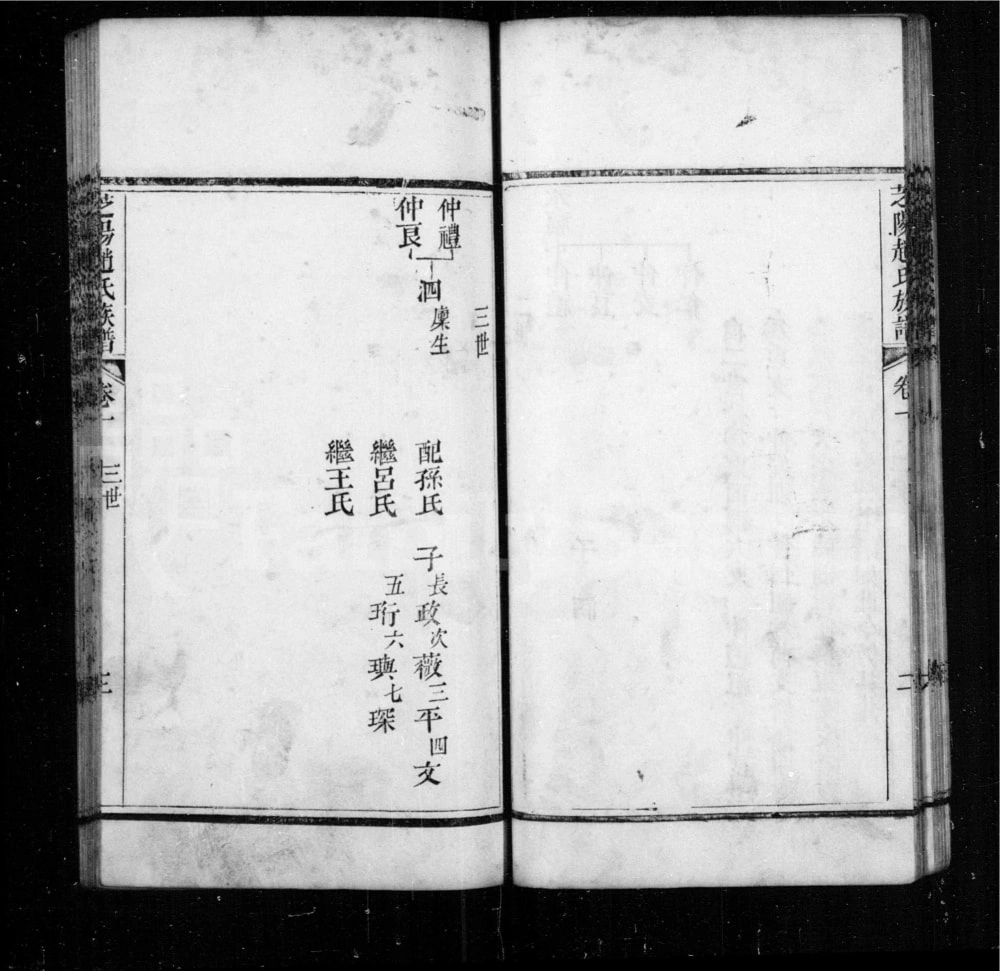 芝陽趙氏族譜
卷一
二
三世
仲禮
仲良
泗廩生
配孫氏
子長政次薇三平四文
五珩六璵七琛
繼呂氏
繼王氏
芝陽趙氏族譜
卷一
三世
三